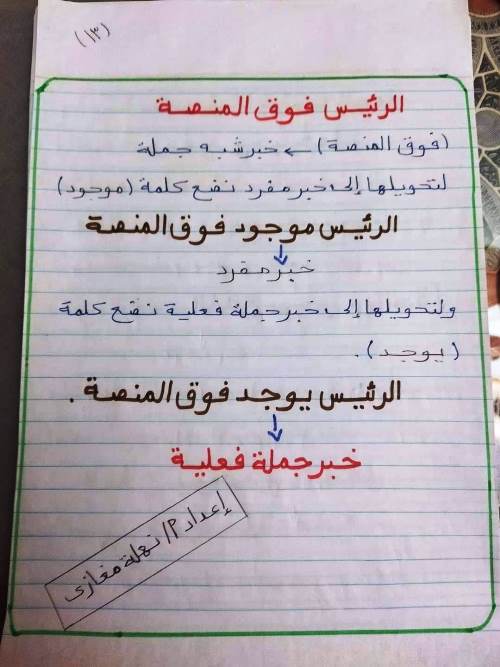 (١٣)
الرئيس فوق المنصة
(فوق المنصة) ← خبر شبه جملة
لتحويلها إلى خبر مفرد نضع كلمة (موجود)
الرئيس موجود فوق المنصة
↓
خبر مفرد
ولتحويلها إلى خبر جملة فعلية نضع كلمة
(يوجد).
الرئيس يوجد فوق المنصة.
↓
خبر جملة فعلية
إعداد م/ نهلة مغازى